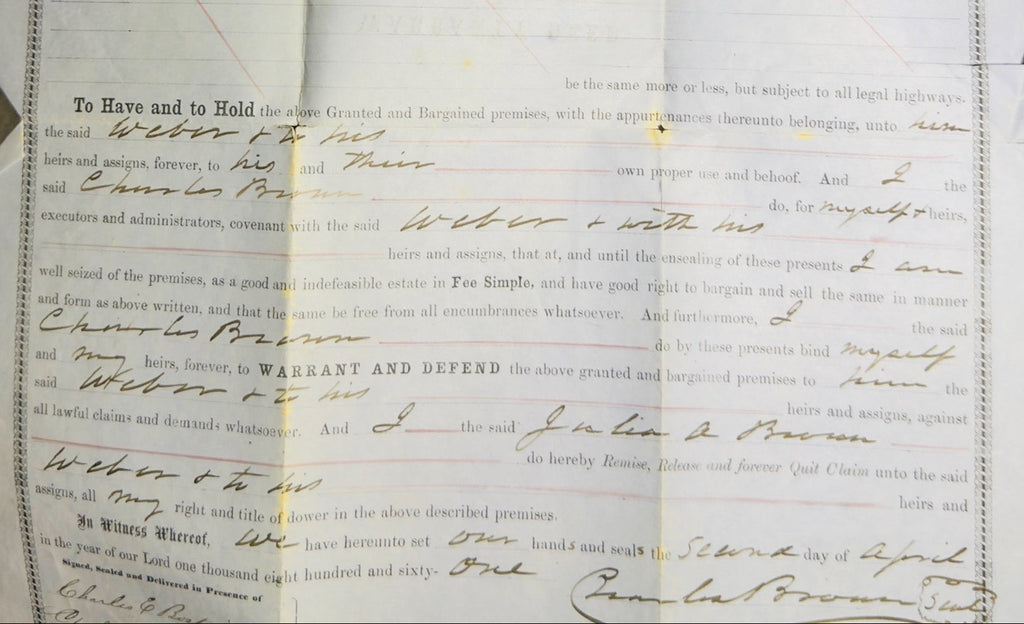 be the same more or less, but subject to all legal highways.
To Have and to Hold the above Granted and Bargained premises, with the appurtenances thereunto belonging, unto him
the said Weber & to his
heirs and assigns, forever, to his and their own proper use and behoof. And I the
said Charles Brown do, for myself & heirs,
executors and administrators, covenant with the said Weber & with his
heirs and assigns, that at, and until the ensealing of these presents I am
well seized of the premises, as a good and indefeasible estate in Fee Simple, and have good right to bargain and sell the same in manner
and form as above written, and that the same be free from all encumbrances whatsoever. And furthermore, I the said
Charles Brown do by these presents bind myself
and my heirs, forever, to WARRANT AND DEFEND the above granted and bargained premises to him the
said Weber & to his heirs and assigns, against
all lawful claims and demands whatsoever. And I the said Julia A Brown
do hereby Remise, Release and forever Quit Claim unto the said
Weber & to his heirs and
assigns, all my right and title of dower in the above described premises.
In Witness Whereof, We have hereunto set our hands and seals the Second day of April
in the year of our Lord one thousand eight hundred and sixty-One
Signed, Sealed and Delivered in Presence of
Charles Brown Seal
Charles E